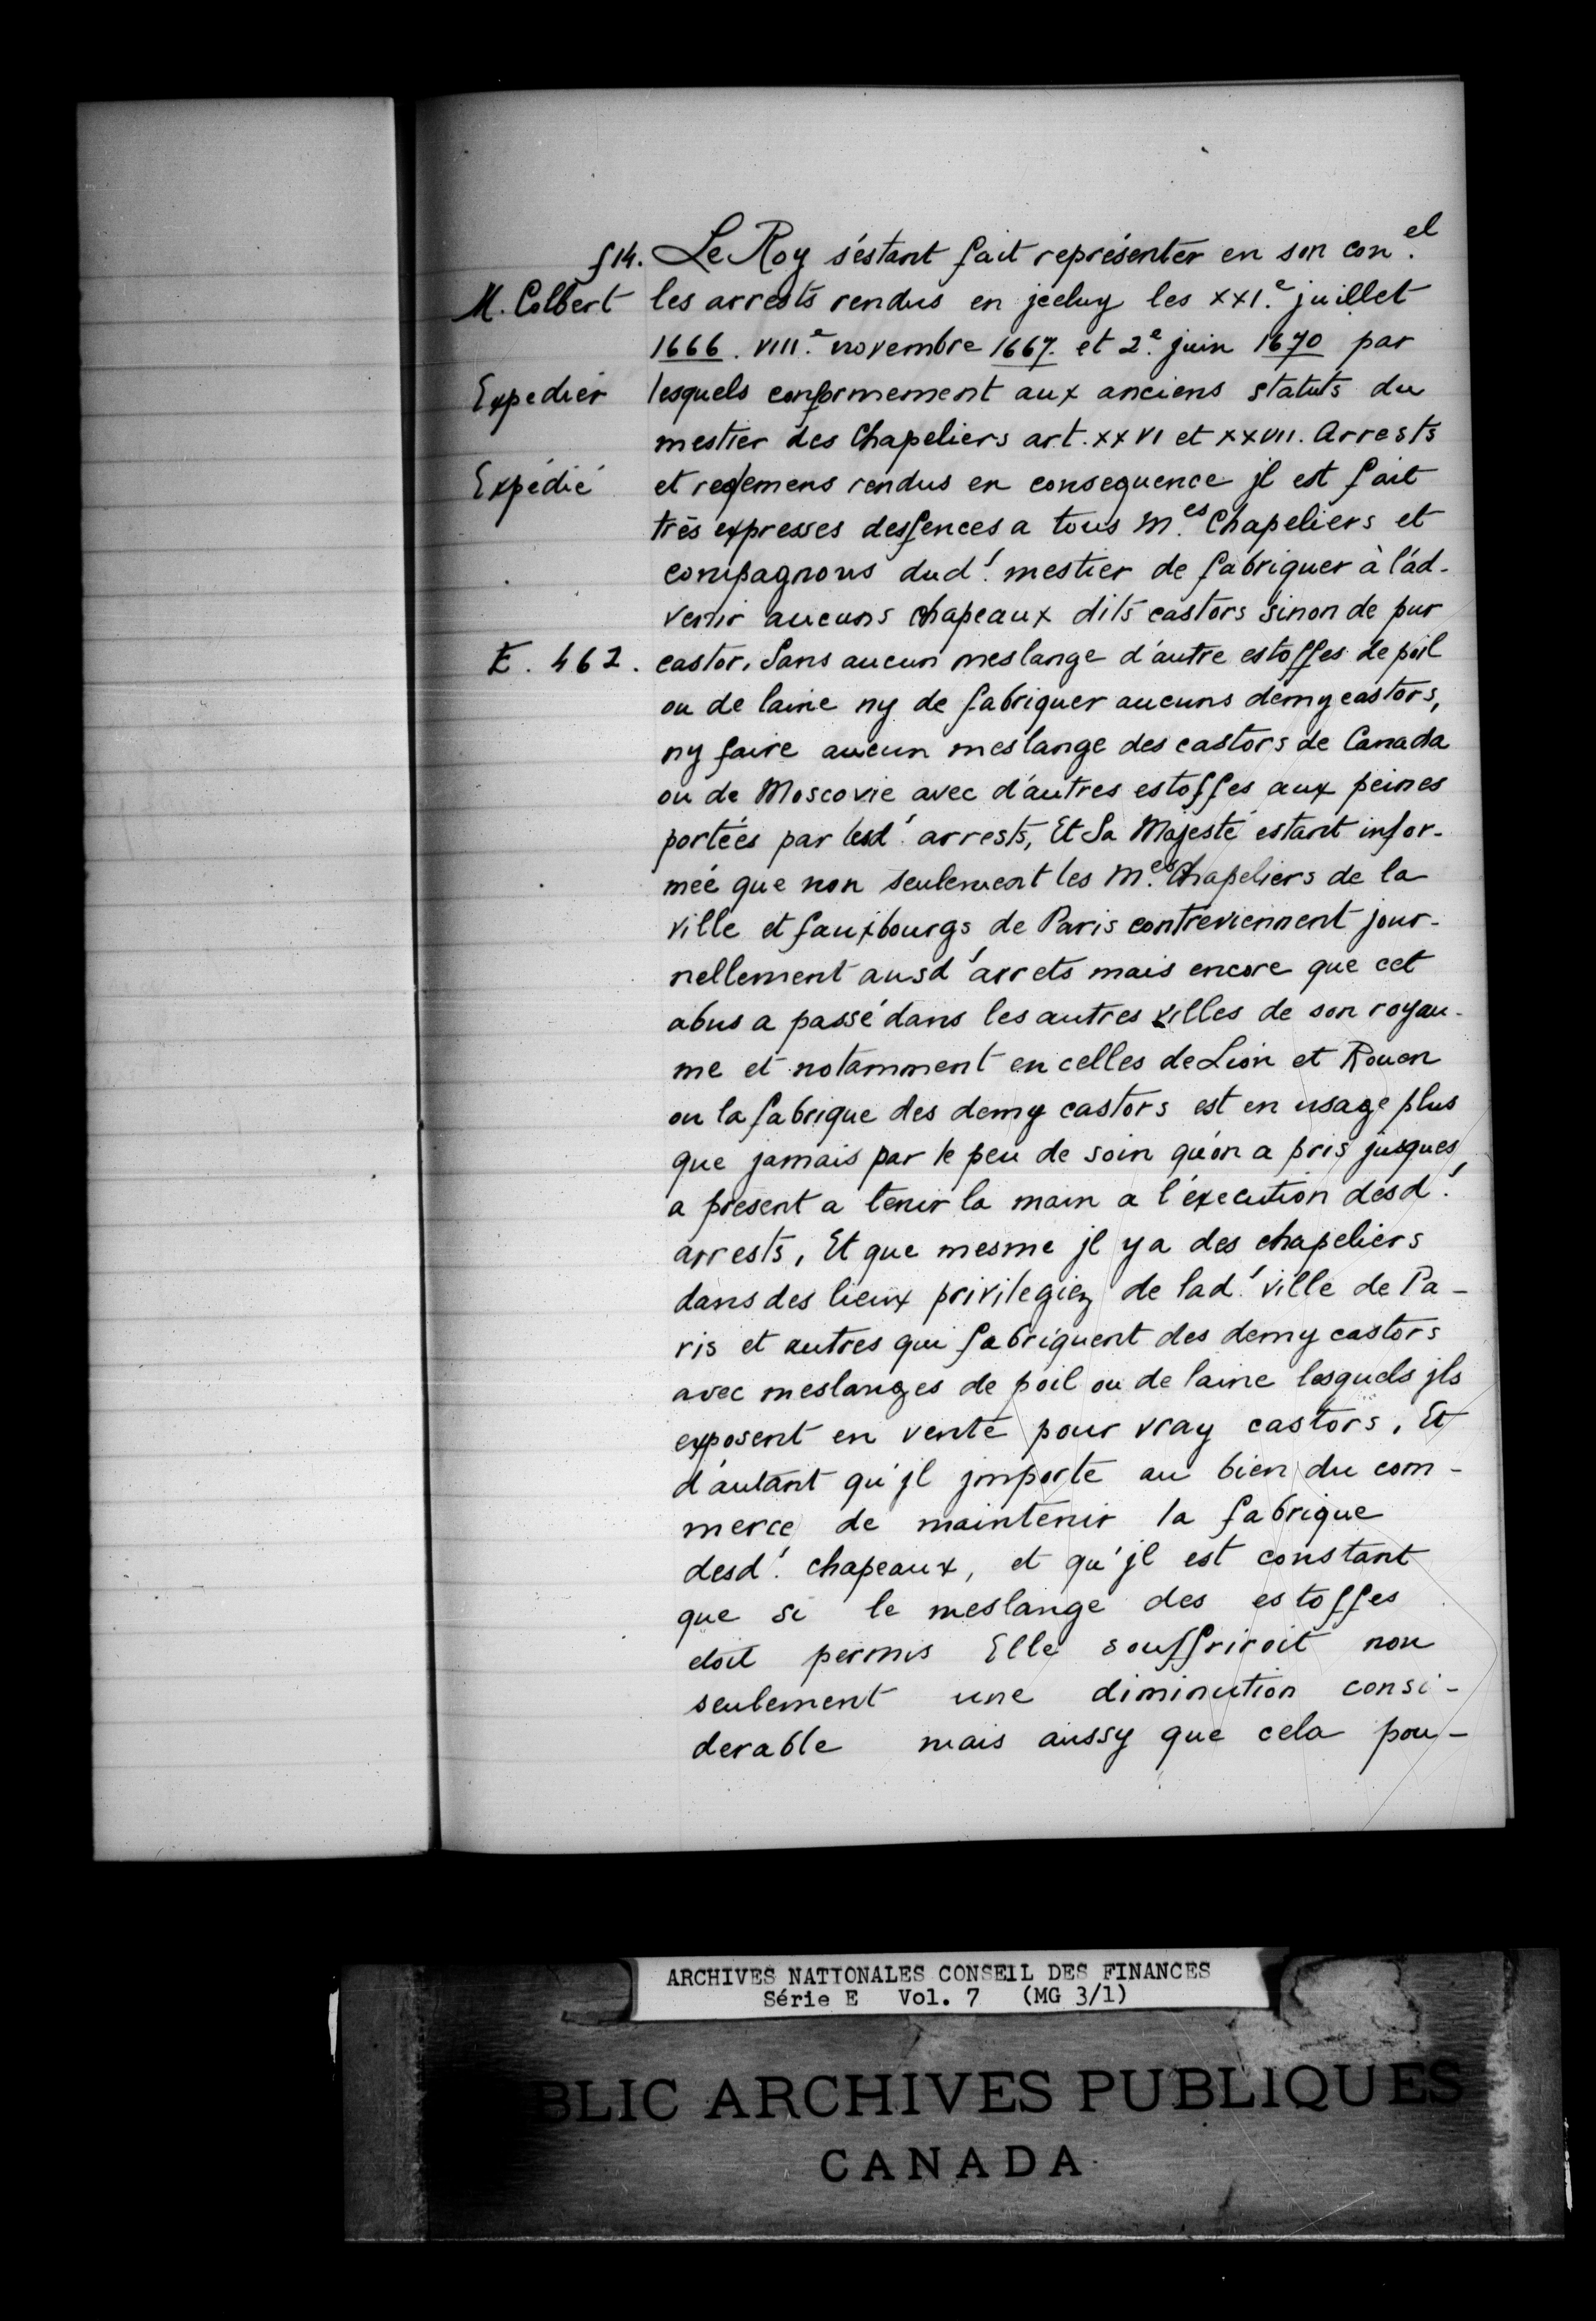 f 14. Le Roy s'éstant fait représenter en son con.el
M. Colbert les arrests rendus en jceluy les XXI.e juillet
1666. VIII.e novembre 1667. et 2.e juin 1670 par
Expedier lesquels conformement aux anciens statuts du
mestier des Chapeliers art. XXVI et XXVII. Arrests
Expédié et reglemens rendus en consequence jl est fait
très expresses deffences a tous M.es Chapeliers et
compagnons dud! mestier de fabriquer à l'ad-
venir aucuns chapeaux dits castors sinon de pur
E. 462. castor, Sans aucun meslange d'autre estoffes de poil
ou de laine ny de fabriquer aucuns demy castors,
ny faire aucun meslange des castors de Canada
ou de Moscovie avec d'autres estoffes aux peines
portées par lesd! arrests, Et Sa Majesté estant infor-
mée que non seulement les M.es Chapeliers de la
ville et fauxbourgs de Paris contreviennent jour-
nellement ausd' arrets mais encore que cet
abus a passé dans les autres villes de son royau-
me et notamment en celles de Lion et Rouen
ou la fabrique des demy castors est en usage plus
que jamais par le peu de soin qu'on a pris jusques
a present a tenir la main a l'éxecution desd!
arrests, Et que mesme jl y a des chapeliers
dans des lieux privilegiez de lad! ville de Pa-
ris et autres qui fabriquent des demy castors
avec meslanges de poil ou de laine lesquels jls
exposent en vente pour vray castors, Et
d'autant qu'jl jmporte au bien du com-
merce de maintenir la fabrique
desd! chapeaux, et qu'jl est constant
que si le meslange des estoffes
etoit permis Elle souffriroit non
seulement une diminution consi-
derable mais aussy que cela pou-
ARCHIVES NATIONALES CONSEIL DES FINANCES
Série E Vol. 7 (MG 3/1)
BLIC ARCHIVES PUBLIQUES
CANADA